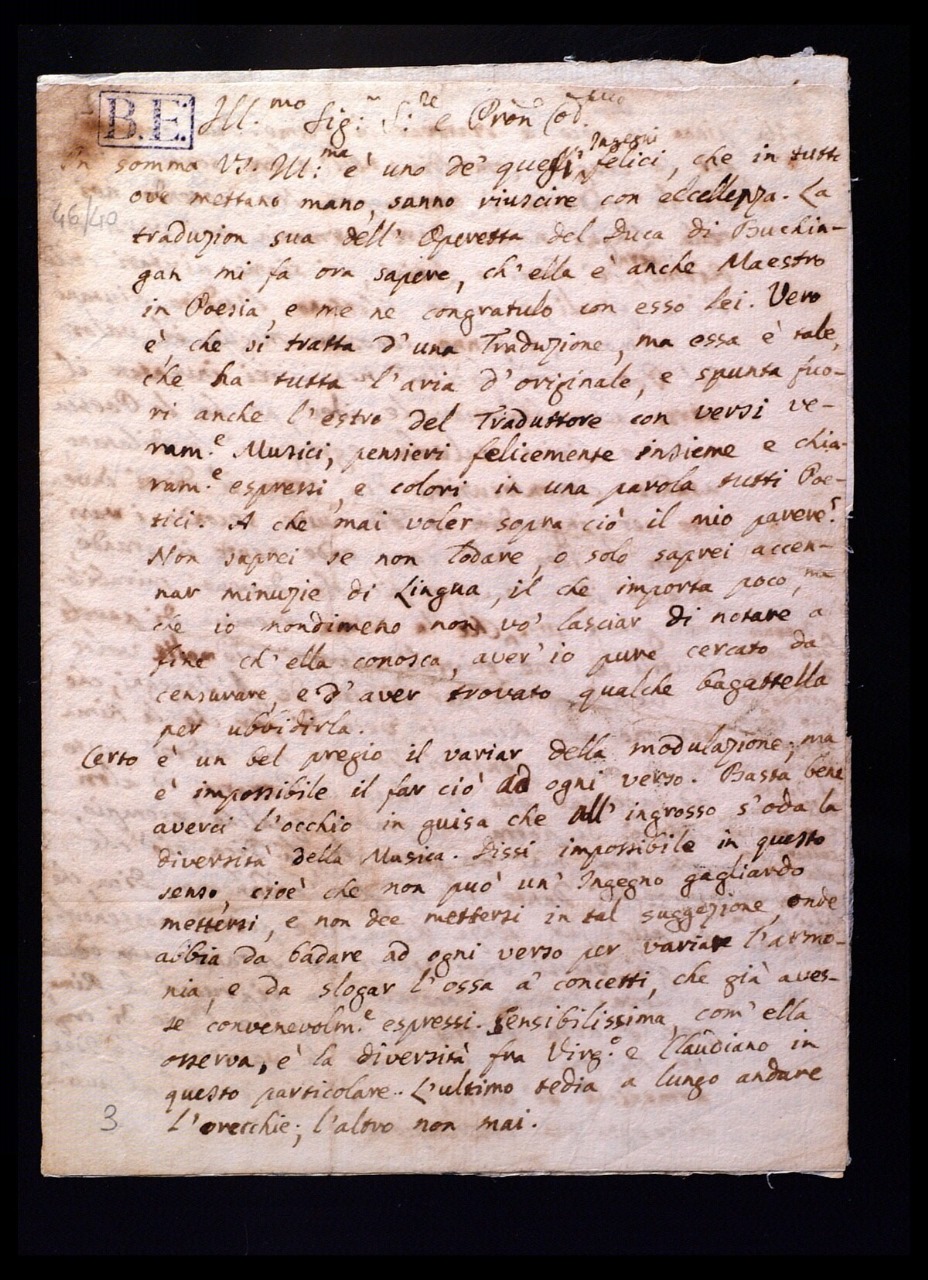 B.E.
Ill.mo Sig.r S.re e Pròn Col.mo
In somma V.S. Ill.ma è uno de' quegli Ingegni felici, che in tutto
ove mettano mano, sanno riuscire con eccellenza. La
46/40
traduzion sua dell' Operetta del Duca di Buchin-
gan mi fa ora sapere, ch' ella è anche Maestro
in Poesia, e me ne congratulo con esso lei. Vero
è, che si tratta d' una Traduzione, ma essa è tale,
che ha tutta l' aria d' originale, e spunta fuo-
ri anche l' estro del Traduttore con versi ve-
ram.e Musici, pensieri felicemente insieme e chia-
ram.e espressi, e colori in una parola tutti Poe-
tici. A che mai voler sopra ciò il mio parere?
Non saprei se non lodare, o solo saprei accen-
nar minuzie di Lingua, il che importa poco, ma
che io nondimeno non vo' lasciar di notare a
fine ch' ella conosca, aver' io pure cercato da
censurare, e d' aver trovato qualche bagattella
per ubbidirla.
Certo è un bel pregio il variar della modulazione; ma
è impossibile il far ciò ad ogni verso. Basta bene
averci l' occhio in guisa che all' ingrosso s' oda la
diversità della Musica. Dissi impossibile in questo
senso, cioè che non può un' Ingegno gagliardo
mettersi, e non dee mettersi in tal suggezione, onde
abbia da badare ad ogni verso per variare l' armo-
nia, e da slogar l' ossa a' concetti, che già aves-
se convenevolm.e espressi. Sensibilissima, com' ella
osserva, è la diversità fra Virg.o e Claudiano in
questo particolare. L' ultimo tedia a lungo andare
l' orecchie; l' altro non mai.
3